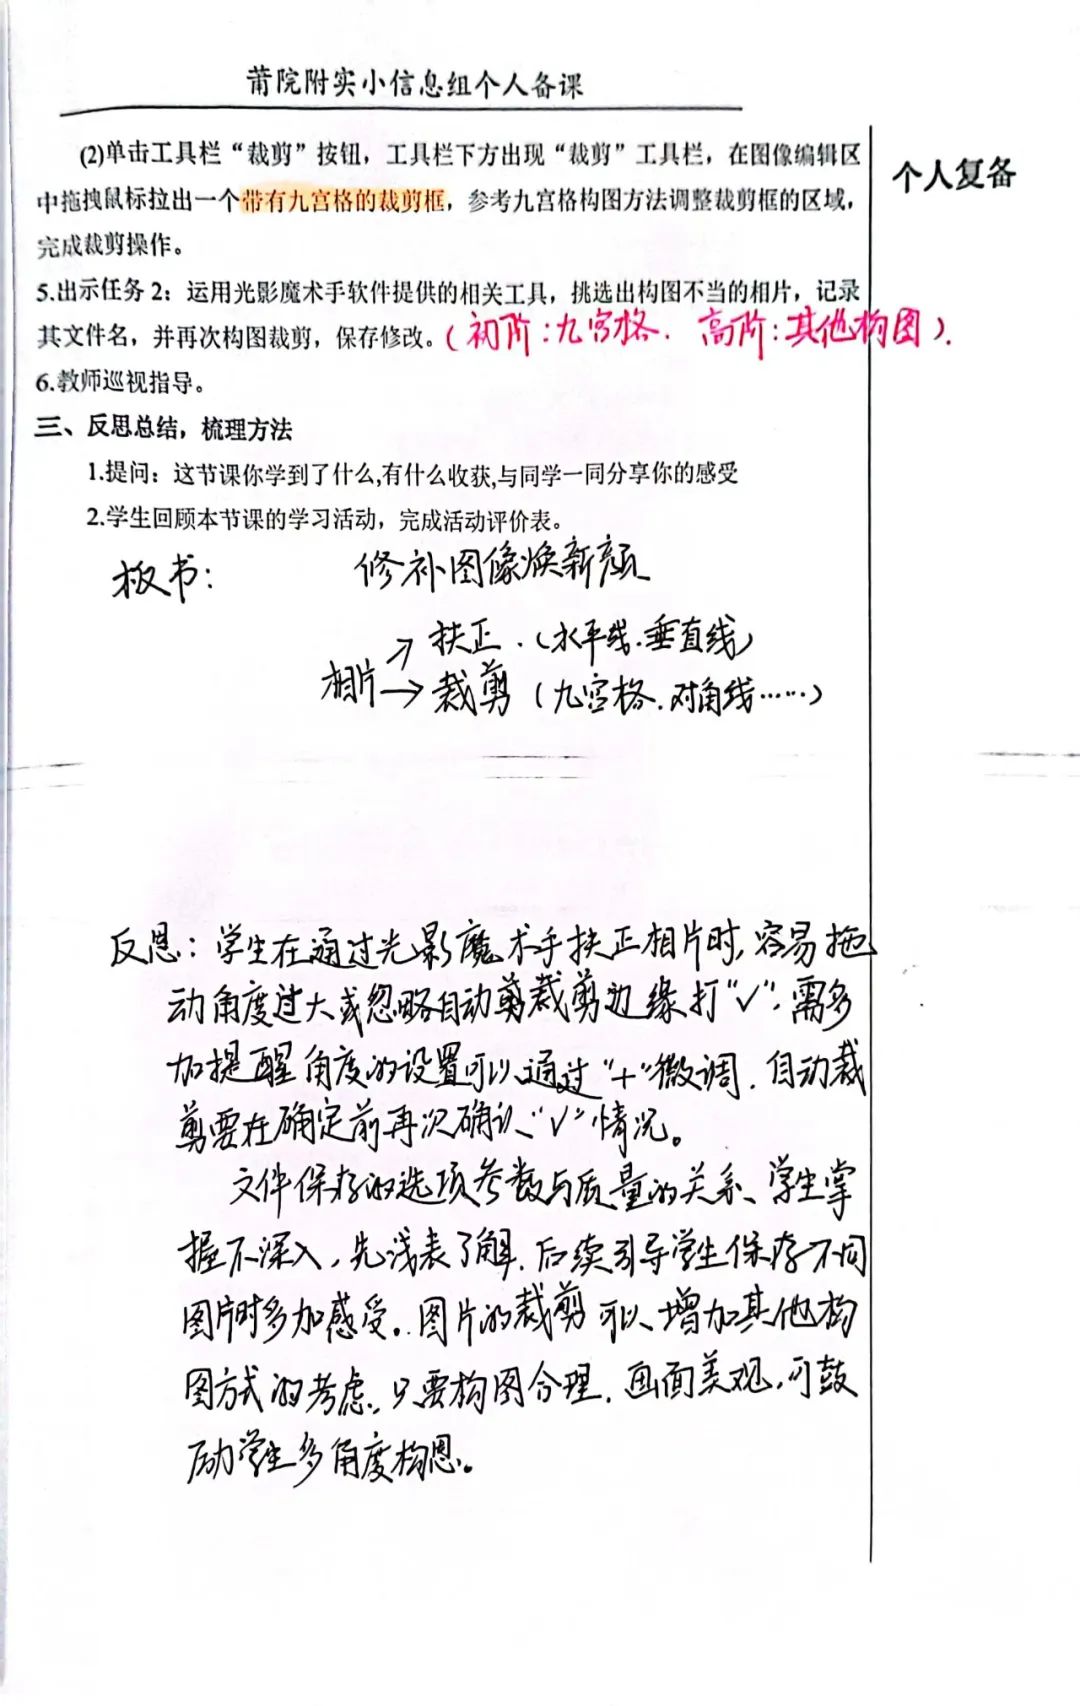 莆院附实小信息组个人备课
个人复备
(2)单击工具栏“裁剪”按钮，工具栏下方出现“裁剪”工具栏，在图像编辑区
中拖拽鼠标拉出一个带有九宫格的裁剪框，参考九宫格构图方法调整裁剪框的区域，
完成裁剪操作。
5.出示任务2：运用光影魔术手软件提供的相关工具，挑选出构图不当的相片，记录
其文件名，并再次构图裁剪，保存修改。(初阶:九宫格. 高阶:其他构图).
6.教师巡视指导。
三、反思总结，梳理方法
1.提问：这节课你学到了什么,有什么收获,与同学一同分享你的感受
2.学生回顾本节课的学习活动，完成活动评价表。
板书: 修补图像焕新颜
→扶正.(水平线.垂直线)
相片→裁剪(九宫格.对角线……)
反思:学生在通过光影魔术手扶正相片时,容易拖
动角度过大或忽略自动裁剪边缘打“√”.需多
加提醒角度的设置可以通过“+”微调.自动裁
剪要在确定前再次确认“√”情况。
文件保存的选项参数与质量的关系、学生掌
握不深入,先浅表了解.后续引导学生保存不同
图片时多加感受。图片的裁剪可以增加其他构
图方式的考虑,只要构图合理.画面美观,可鼓
励学生多角度构思。